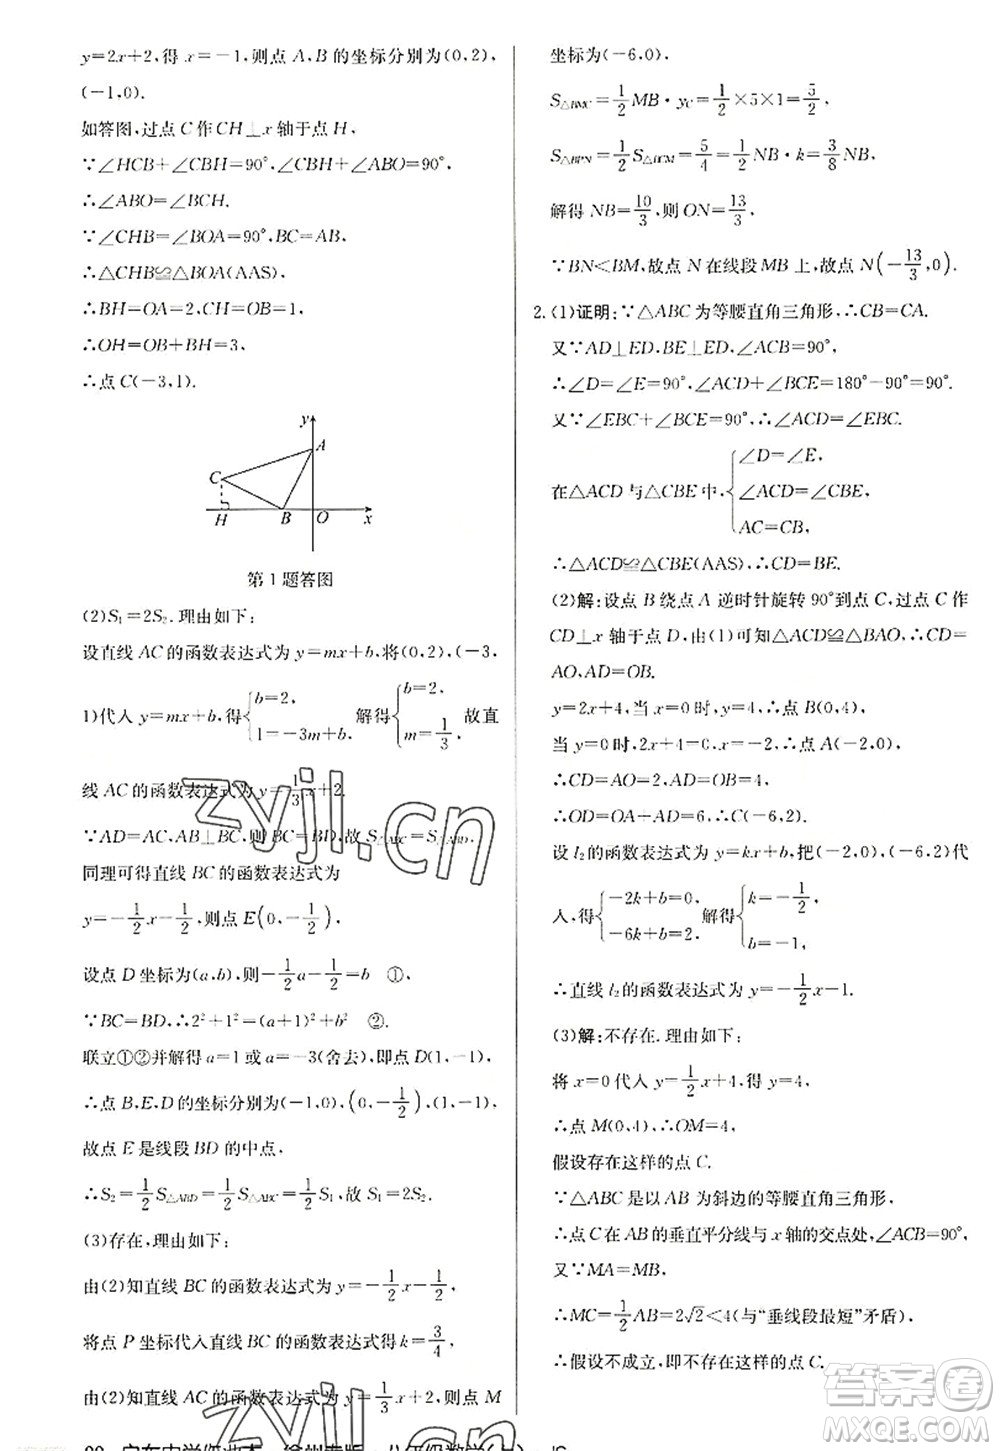 y=2x+2,得 x=-1,则点 A,B 的坐标分别为(0,2),
(-1,0).
如答图,过点 C 作 CH⊥x 轴于点 H,
∵∠HCB+∠CBH=90°,∠CBH+∠ABO=90°,
∴∠ABO=∠BCH.
∵∠CHB=∠BOA=90°,BC=AB,
∴△CHB≌△BOA(AAS),
∴BH=OA=2,CH=OB=1,
∴OH=OB+BH=3,
∴点 C(-3,1).
y
A
C
H
B
O
x
第 1 题答图
(2)S₁=2S₂.理由如下:
设直线 AC 的函数表达式为 y=mx+b,将(0,2),(-3,
1)代入 y=mx+b,得{b=2, 1=-3m+b, 解得{b=2, m=1/3, 故直
线 AC 的函数表达式为 y=1/3x+2.
∵AD=AC,AB⊥BC,则 BC=BD,故 S△ABC=S△ABD,
同理可得直线 BC 的函数表达式为
y=-1/2x-1/2,则点 E(0,-1/2),
设点 D 坐标为(a,b),则-1/2a-1/2=b ①,
∵BC=BD,∴2²+1²=(a+1)²+b² ②.
联立①②并解得 a=1 或 a=-3(舍去),即点 D(1,-1),
∴点 B,E,D 的坐标分别为(-1,0),(0,-1/2),(1,-1),
故点 E 是线段 BD 的中点,
∴S₂=1/2S△ABD=1/2S△ABC=1/2S₁,故 S₁=2S₂.
(3)存在,理由如下:
由(2)知直线 BC 的函数表达式为 y=-1/2x-1/2,
将点 P 坐标代入直线 BC 的函数表达式得 k=3/4,
由(2)知直线 AC 的函数表达式为 y=1/3x+2,则点 M
坐标为(-6,0),
S△BMC=1/2MB·yC=1/2×5×1=5/2,
S△BPN=1/2S△BCM=5/4=1/2NB·k=3/8NB,
解得 NB=10/3,则 ON=13/3,
∵BN<BM,故点 N 在线段 MB 上,故点 N(-13/3,0).
2.(1)证明:∵△ABC 为等腰直角三角形,∴CB=CA.
又∵AD⊥ED,BE⊥ED,∠ACB=90°,
∴∠D=∠E=90°,∠ACD+∠BCE=180°-90°=90°.
又∵∠EBC+∠BCE=90°,∴∠ACD=∠EBC.
在△ACD 与△CBE 中,{∠D=∠E, ∠ACD=∠EBC, AC=CB,
∴△ACD≌△CBE(AAS),∴CD=BE.
(2)解:设点 B 绕点 A 逆时针旋转 90°到点 C,过点 C 作
CD⊥x 轴于点 D,由(1)可知△ACD≌△BAO,∴CD=
AO,AD=OB.
y=2x+4,当 x=0 时,y=4,∴点 B(0,4),
当 y=0 时,2x+4=0,x=-2,∴点 A(-2,0),
∴CD=AO=2,AD=OB=4,
∴OD=AD+AO=6,∴C(-6,2).
设 l₂的函数表达式为 y=kx+b,把(-2,0),(-6,2)代
入,得{-2k+b=0, -6k+b=2. 解得{k=-1/2, b=-1,
∴直线 l₂的函数表达式为 y=-1/2x-1.
(3)解:不存在.理由如下:
将 x=0 代入 y=-1/2x+4,得 y=4,
∴点 M(0,4),∴OM=4,
假设存在这样的点 C.
∵△ABC 是以 AB 为斜边的等腰直角三角形,
∴点 C 在 AB 的垂直平分线与 x 轴的交点处,∠ACB=90°,
又∵MA=MB,
∴MC=1/2AB=2√2<4(与“垂线段最短”矛盾),
∴假设不成立,即不存在这样的点 C.
zyjl.cn
答案圈
MXQE.COM